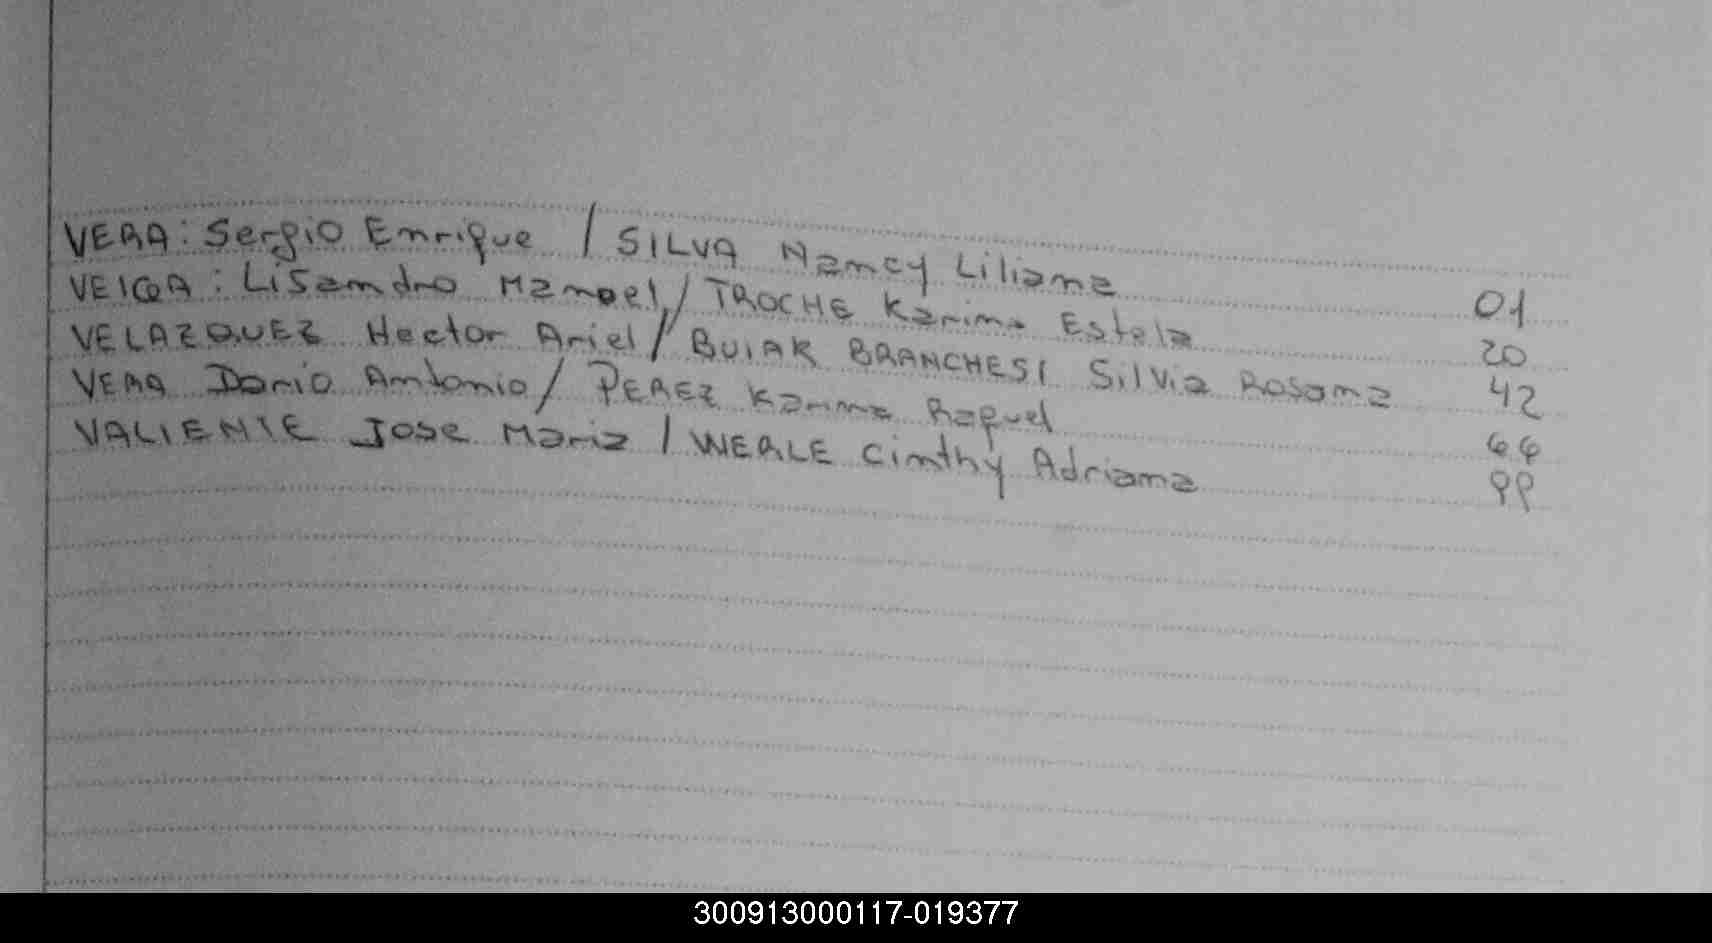 VERA: Sergio Enrique / SILVA Nancy Liliana 01
VEIGA: Lisandro Manoel / TROCHE Karina Estela 20
VELAZQUEZ Hector Ariel / BUIAK BRANCHESI Silvia Rosana 42
VERA Dario Antonio / PEREZ Karina Raquel 66
VALIENTE Jose Maria / WERLE Cinthy Adriana 99
300913000117-019377